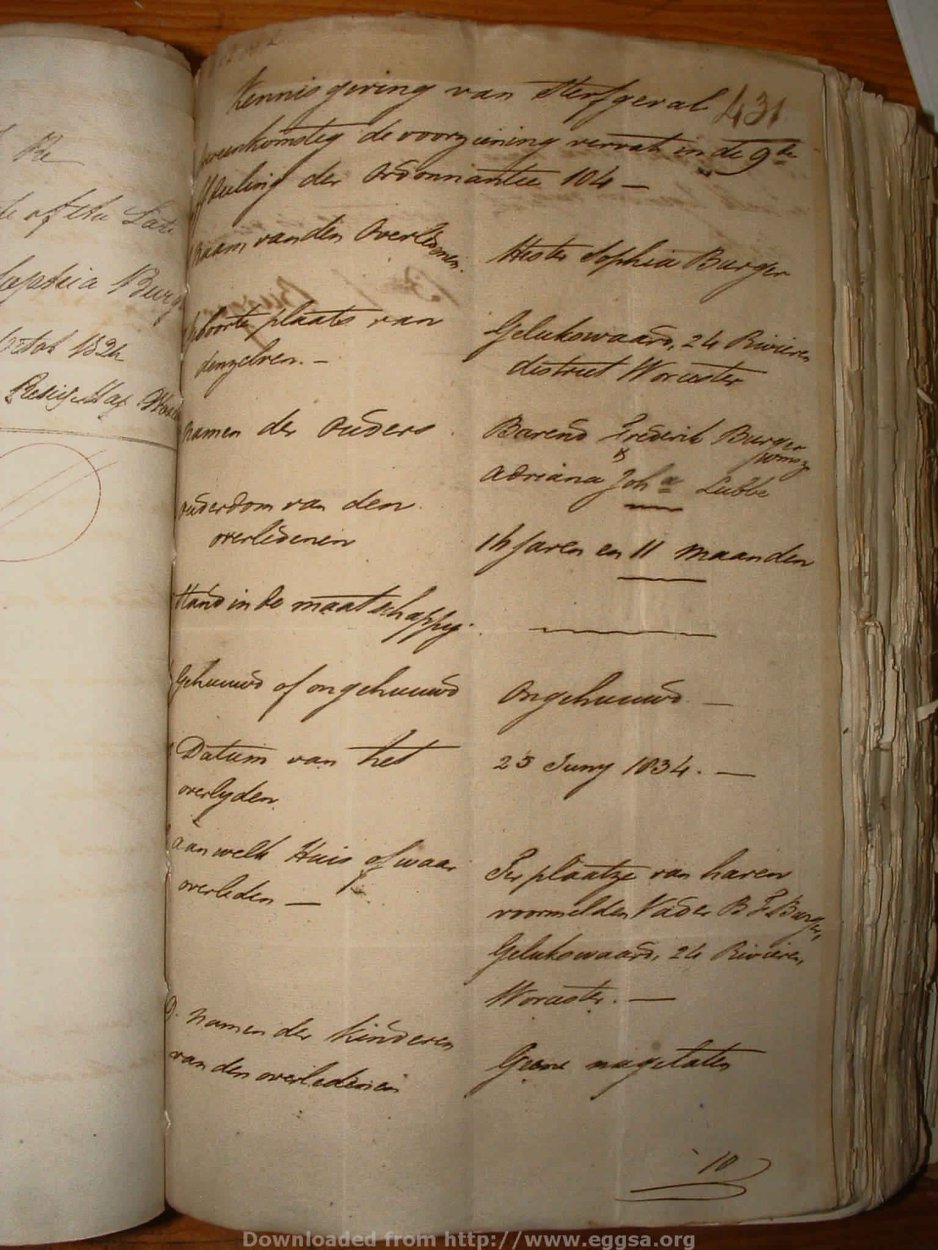 Kennisgeving van Sterfgeval 431
overeenkomstig de voorziening vervat in de 9de
Afdeeling der Ordonnantie 104 —
Naam van den Overledenen. Hester Sophia Burger
Geboorte plaats van Gelukswaard, 24 Rivieren
denzelven. — district Worcester
Namen der Ouders Barend Frederik Burger
Adriana Joha Lubbe
ouderdom van den
overledenen 14 Jaren en 11 maanden
Stand in de maatschappy.
Gehuuwd of ongehuuwd Ongehuuwd —
Datum van het 25 Juny 1834. —
overlyden
aan welk Huis of waar Ter plaatze van haren
overleden — voormelden Vader B F Burger,
Gelukswaard, 24 Rivieren,
Worcester. —
9. namen der Kinderen
van den overledenen Geene nagelaten
10
of the Late
Burg
1824
Downloaded from http://www.eggsa.org